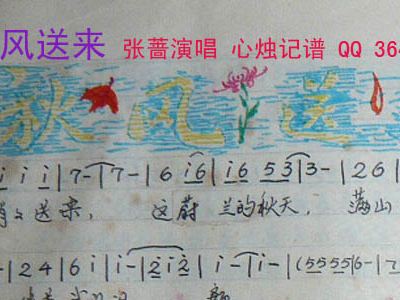 风送来 张蔷演唱 心烛记谱 QQ 364
秋风送
i i i | 7 - 7 - | 6 i6 | i6 53 | 3 - | 2 6 |
送来， 这蔚 兰的秋天， 满山
- | 2 4 | 6 i | i - | 2 i 2 | i - | i - | (5555 | 6 - | 7